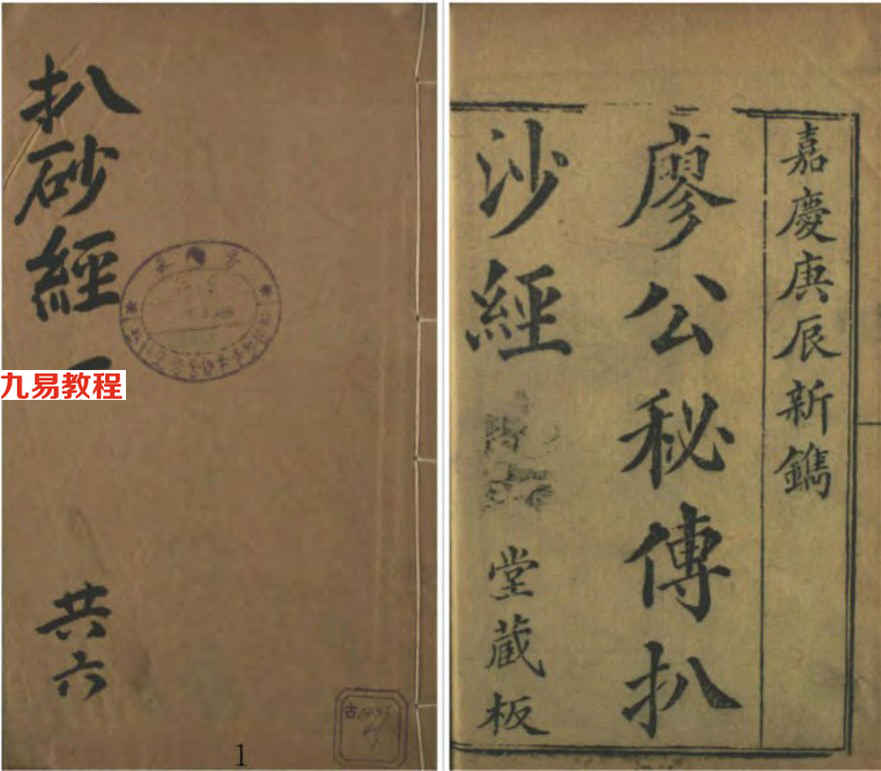 扒砂經
九易教程
共六
1
嘉慶庚辰新鐫
廖公秘傳扒
沙經
堂藏板